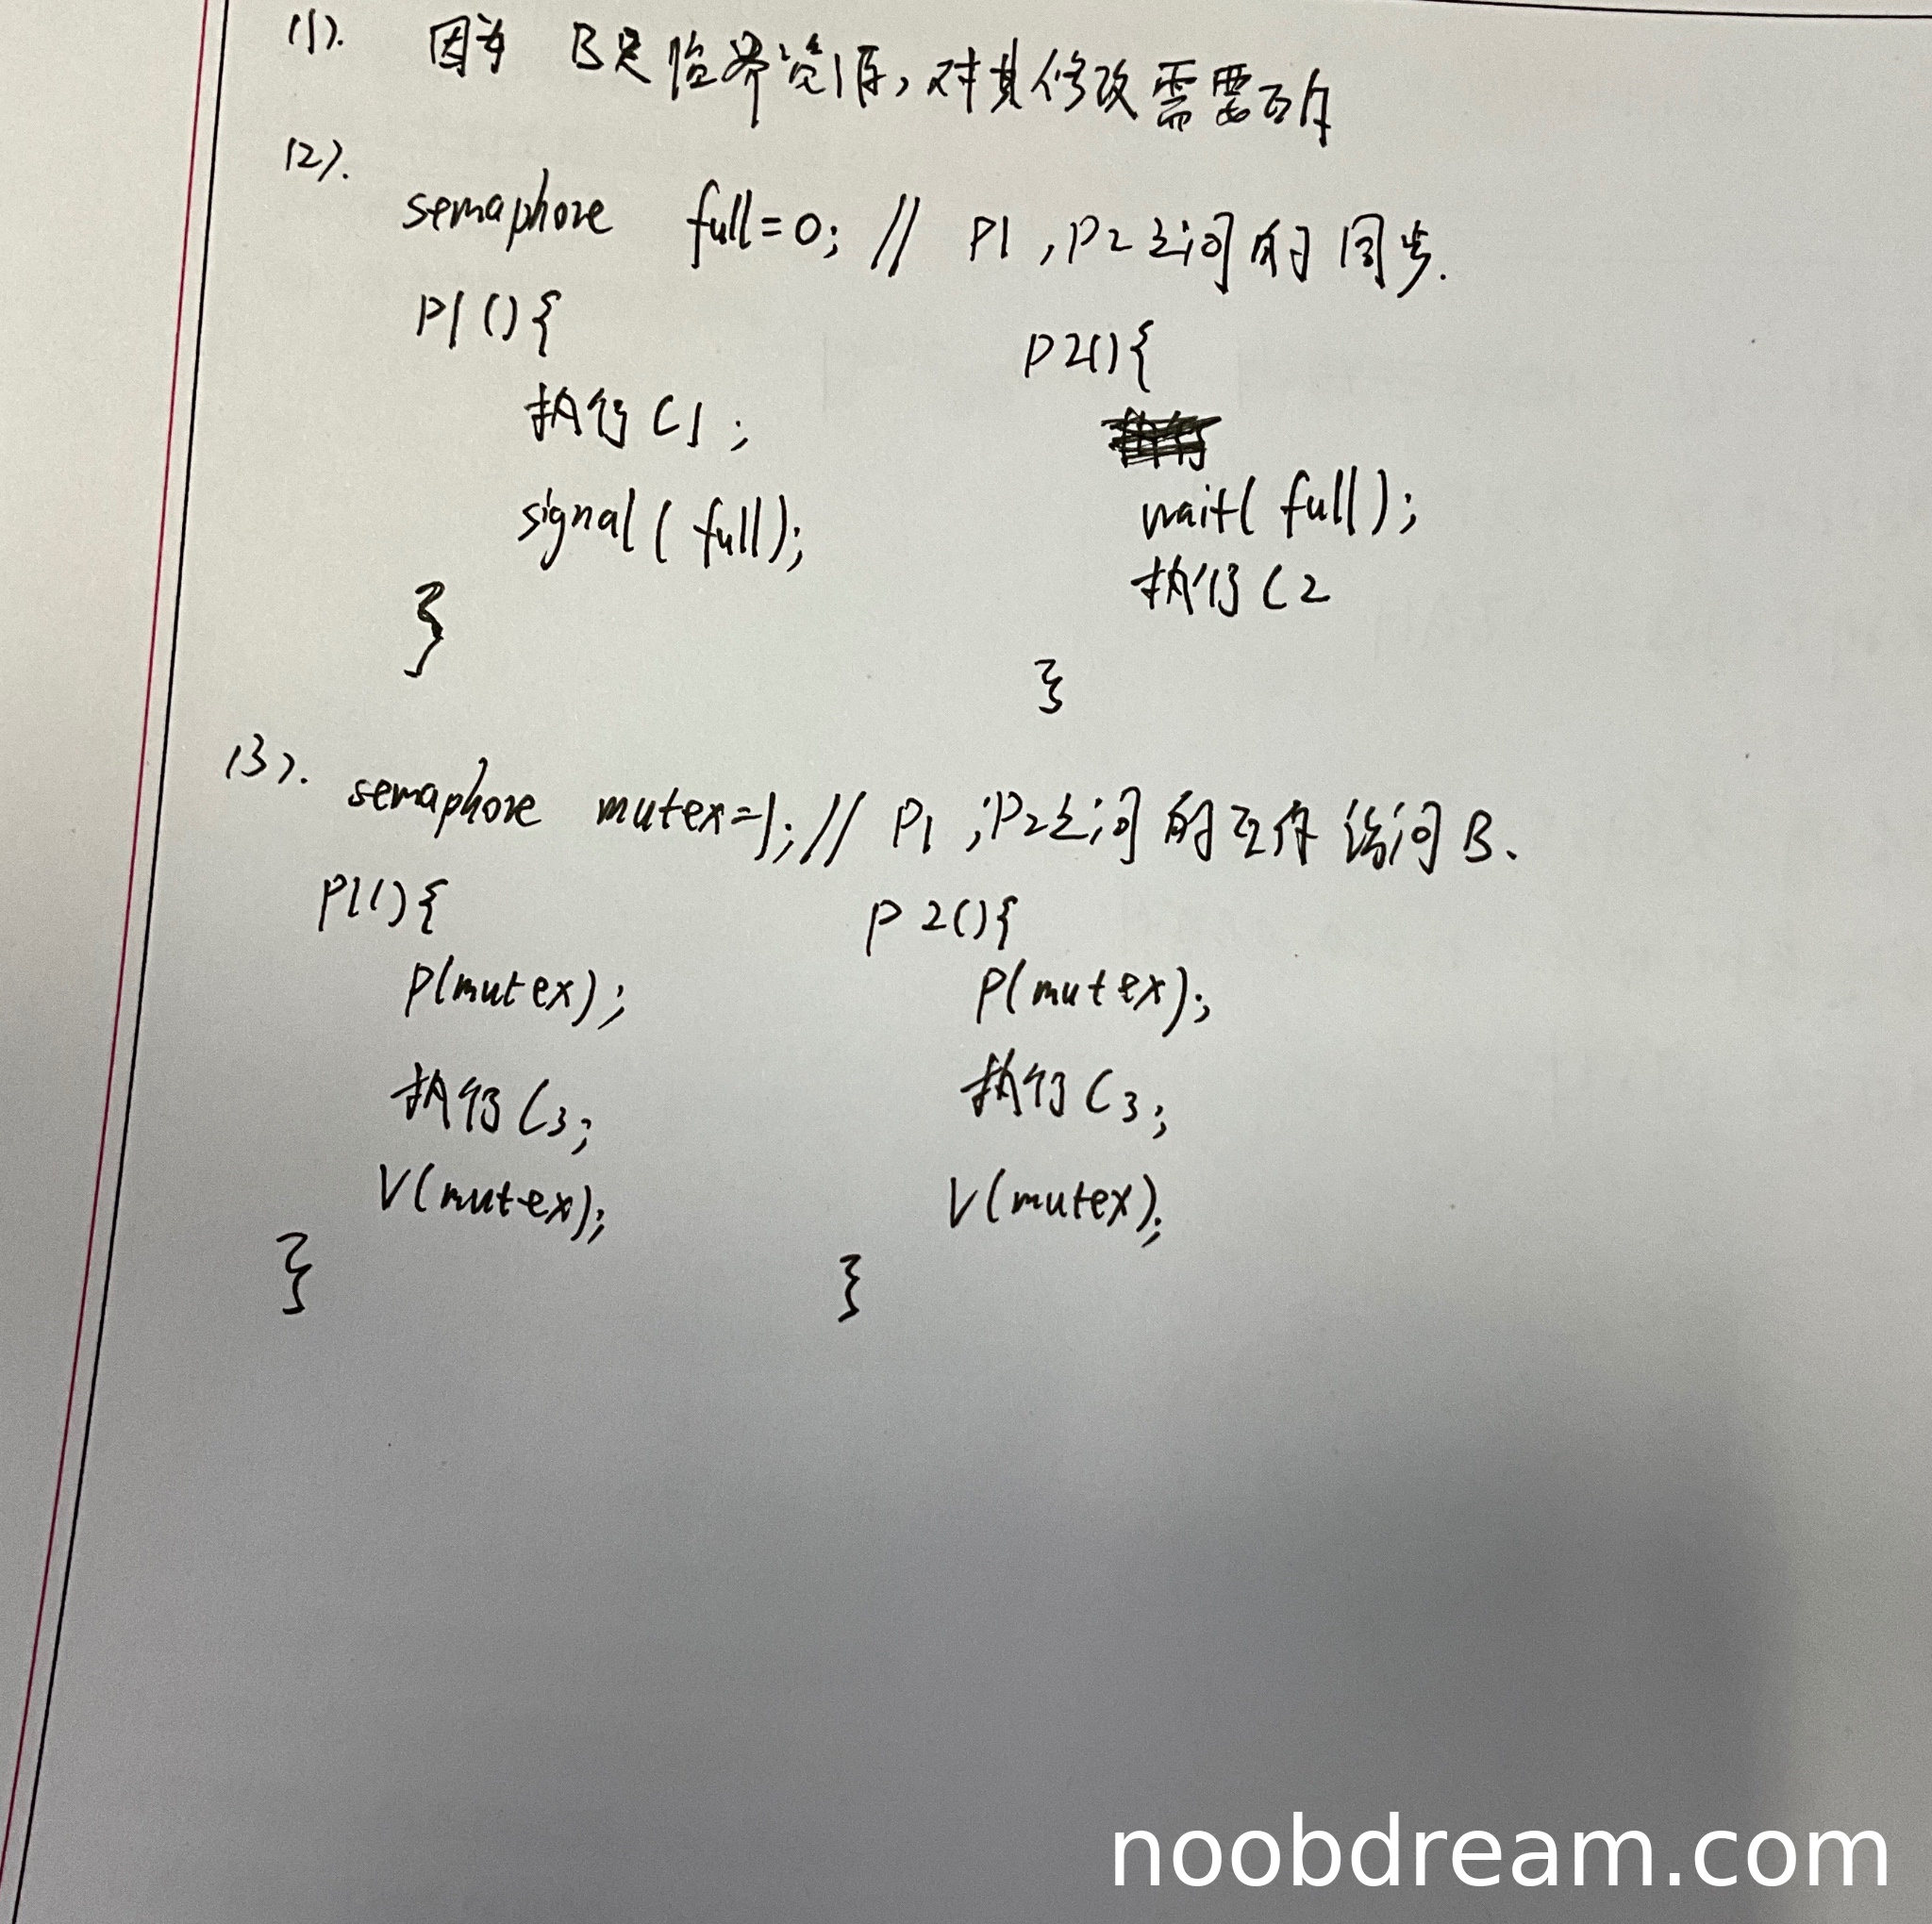 (1). 因为 B是临界资源,对其修改需要互斥
(2).
semaphore full=0; // P1,P2之间的同步.
P1(){
P2(){
执行C1;
signal(full);
wait(full);
执行C2
}
}
(3). semaphore mutex=1;// P1,P2之间的互斥访问B.
P1(){
P2(){
P(mutex);
P(mutex);
执行C3;
执行C3;
V(mutex);
V(mutex);
}
}
noobdream.com